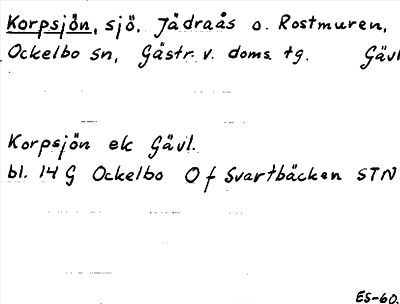 Korpsjön, sjö. Jädraås o. Rostmuren,
Ockelbo sn, Gästr. v. doms. tg. Gävl
Korpsjön ek Gävl.
bl. 14 G Ockelbo O f Svartbäcken STN
ES-60.